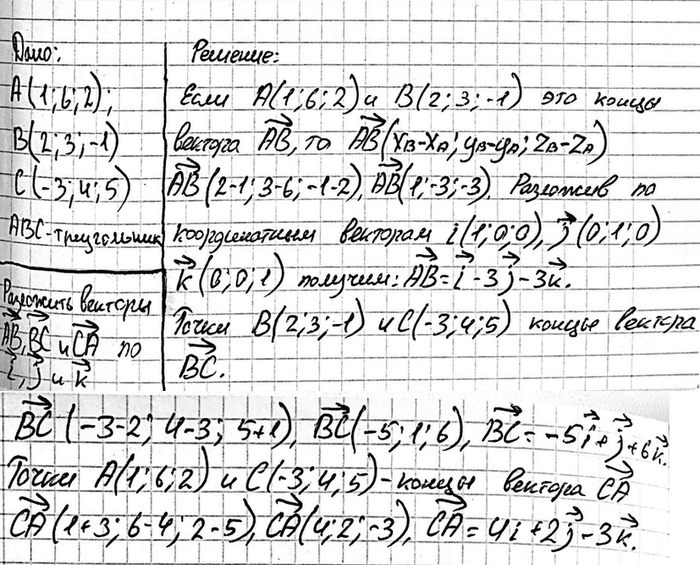 Дано:
A(1;6;2);
B(2;3;-1)
C(-3;4;5)
ABC-треугольник
Разложить векторы
AB, BC и CA по
i, j и k
Решение:
Если A(1;6;2) и B(2;3;-1) это концы
вектора AB, то AB(xB-xA; yB-yA; zB-zA)
AB(2-1; 3-6; -1-2), AB(1;-3;-3). Разложив по
координатным векторам i(1;0;0), j(0;1;0)
k(0;0;1) получим: AB=i-3j-3k.
Точки B(2;3;-1) и C(-3;4;5) концы вектора
BC.
BC(-3-2; 4-3; 5+1), BC(-5;1;6), BC=-5i+j+6k.
Точки A(1;6;2) и C(-3;4;5)-концы вектора CA
CA(1+3; 6-4; 2-5), CA(4;2;-3), CA=4i+2j-3k.